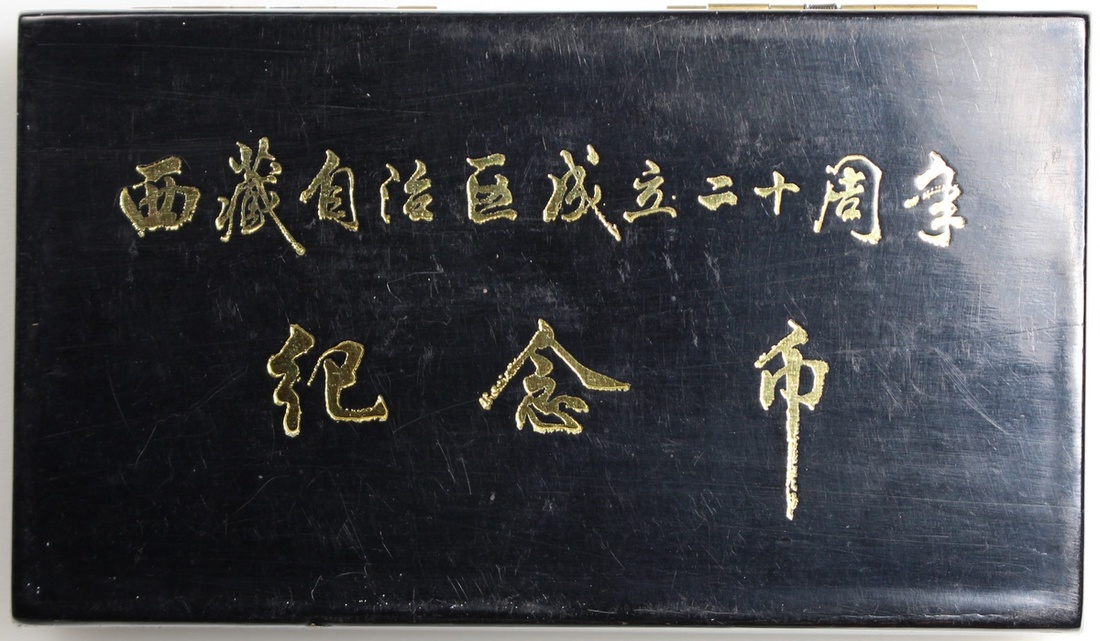 西藏自治区成立二十周年
纪念币